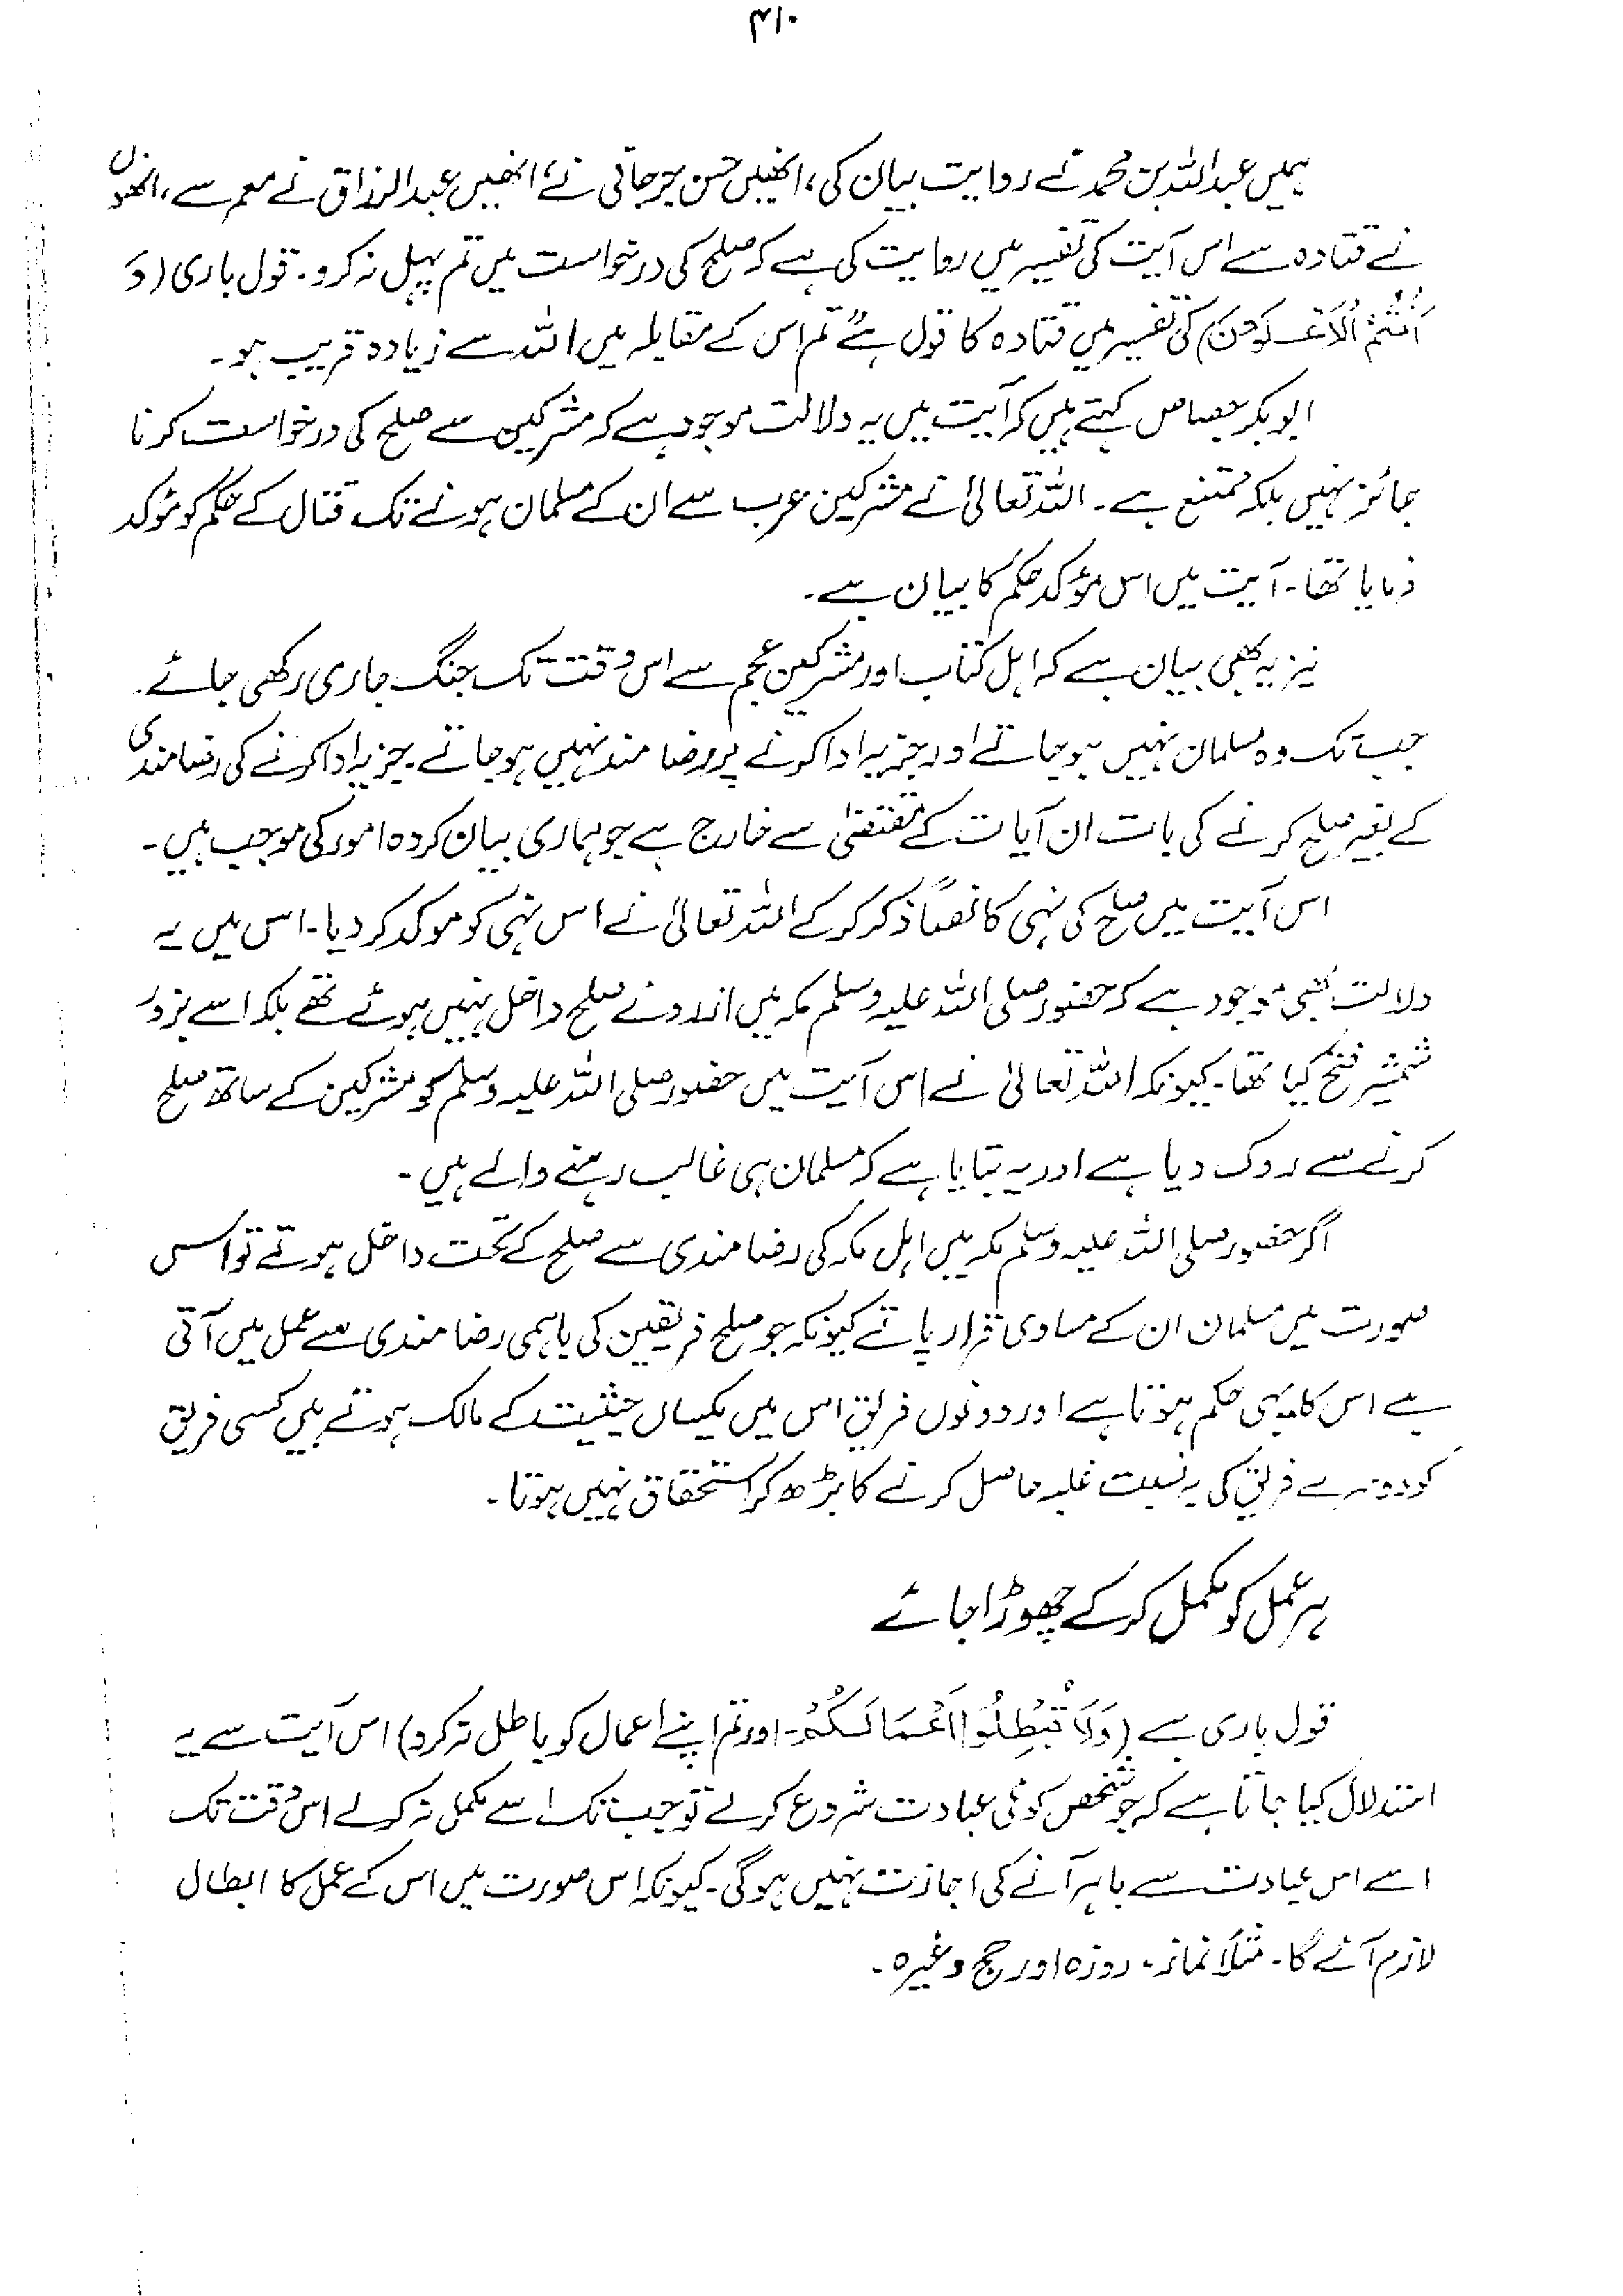 ۴۱۰
ہمیں عبداللہ بن محمد نے روایت بیان کی، انھیں حسن جرجانی نے، انھیں عبدالرزاق نے معمر سے، انھوں
نے قتادہ سے اس آیت کی تفسیر میں روایت کی ہے کہ صلح کی درخواست میں تم پہل نہ کرو۔ قول باری (وَ
اَنْتُمُ الْاَعْلَوْنَ) کی تفسیر میں قتادہ کا قول ہے "تم اس کے مقابلہ میں اللہ سے زیادہ قریب ہو۔
ابوبکر جصاص کہتے ہیں کہ آیت میں یہ دلالت موجود ہے کہ مشرکین سے صلح کی درخواست کرنا
جائز نہیں بلکہ ممتنع ہے۔ اللہ تعالیٰ نے مشرکین عرب سے ان کے مسلمان ہونے تک قتال کے حکم کو مؤکد
فرمایا تھا۔ آیت میں اس مؤکد حکم کا بیان ہے۔
نیز یہ بھی بیان ہے کہ اہل کتاب اور مشرکین عجم سے اس وقت تک جنگ جاری رکھی جائے۔
جب تک وہ مسلمان نہیں ہو جاتے اور جزیہ ادا کرنے پر رضامند نہیں ہو جاتے۔ جزیہ ادا کرنے کی رضامندی
کے بغیر صلح کرنے کی بات ان آیات کے مقتضیٰ سے خارج ہے جو ہماری بیان کردہ امور کی موجب ہیں۔
اس آیت میں صلح کی نہی کا نصاً ذکر کر کے اللہ تعالیٰ نے اس نہی کو موکد کر دیا۔ اس میں یہ
دلالت بھی موجود ہے کہ حضور صلی اللہ علیہ وسلم مکہ میں ازروئے صلح داخل نہیں ہوئے تھے بلکہ اسے بزور
شمشیر فتح کیا تھا۔ کیونکہ اللہ تعالیٰ نے اس آیت میں حضور صلی اللہ علیہ وسلم کو مشرکین کے ساتھ صلح
کرنے سے روک دیا ہے اور یہ بتایا ہے کہ مسلمان ہی غالب رہنے والے ہیں۔
اگر حضور صلی اللہ علیہ وسلم مکہ میں اہل مکہ کی رضامندی سے صلح کے تحت داخل ہوتے تو اس
صورت میں مسلمان ان کے مساوی قرار پاتے کیونکہ جو صلح فریقین کی باہمی رضامندی سے عمل میں آتی
ہے اس کا یہی حکم ہوتا ہے اور دونوں فریق اس میں یکساں حیثیت کے مالک ہوتے ہیں کسی فریق
کو دوسرے فریق کی بہ نسبت غلبہ حاصل کرنے کا بڑھ کر استحقاق نہیں ہوتا۔
ہر عمل کو مکمل کر کے چھوڑا جائے
قول باری ہے (وَلَا تُبْطِلُوْا اَعْمَالَكُمْ۔ اور تم اپنے اعمال کو باطل نہ کرو) اس آیت سے یہ
استدلال کیا جاتا ہے کہ جو شخص کوئی عبادت شروع کر لے تو جب تک اسے مکمل نہ کر لے اس وقت تک
اسے اس عبادت سے باہر آنے کی اجازت نہیں ہوگی۔ کیونکہ اس صورت میں اس کے عمل کا ابطال
لازم آئے گا۔ مثلاً نماز، روزہ اور حج وغیرہ۔